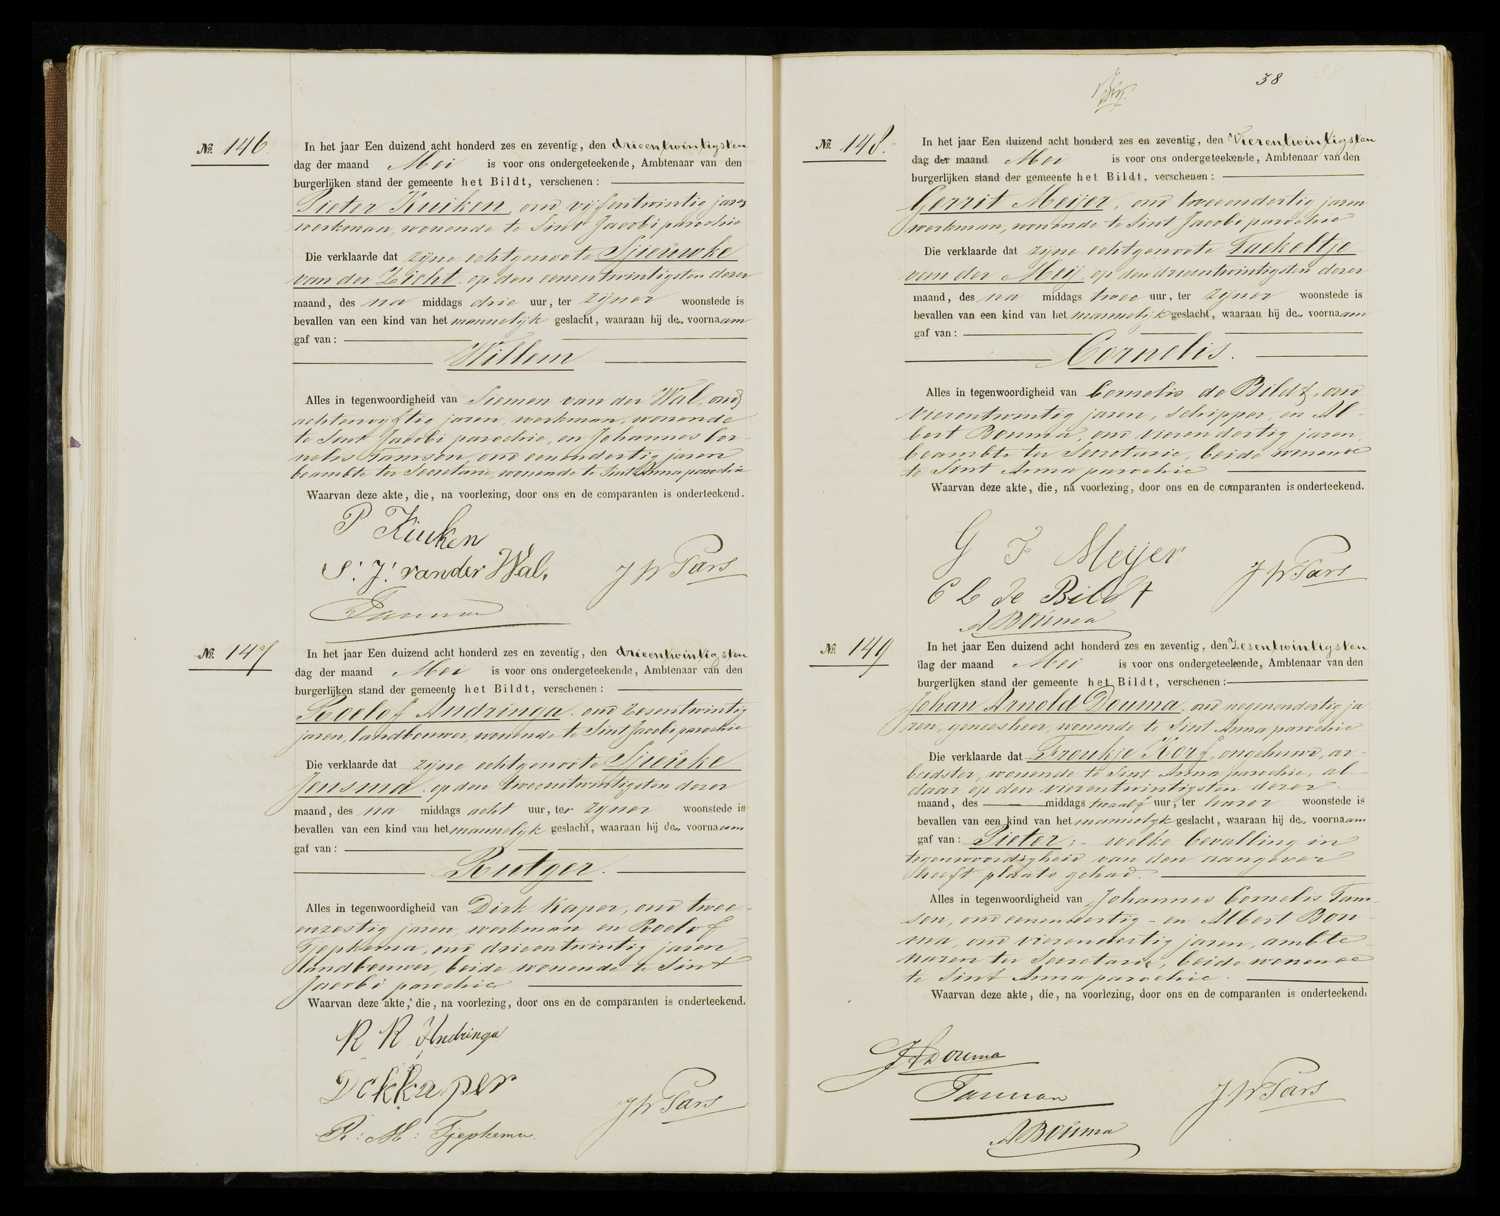 №. 146.
In het jaar Een duizend acht honderd zes en zeventig, den drieentwintigsten
dag der maand Mei is voor ons ondergeteekende, Ambtenaar van den
burgerlijken stand der gemeente het Bildt, verschenen:
Pieter Kuiken, oud vijfentwintig jaren
werkman, wonende te Sint Jacobi parochie
Die verklaarde dat zijne echtgenoote Sjieuwke
van der Zicht, op den eenentwintigsten dezer
maand, des na middags drie uur, ter zijner woonstede is
bevallen van een kind van het mannelijk geslacht, waaraan hij den voornaam
gaf van:
Willem
Alles in tegenwoordigheid van Siemen van der Wal, oud
achtenvijftig jaren, werkman, wonende
te Sint Jacobi parochie, en Johannes Cor-
nelis Tamson, oud eenendertig jaren
beambte ter Secretarie, wonende te Sint Anna parochie
Waarvan deze akte, die, na voorlezing, door ons en de comparanten is onderteekend.
P Kuiken
S. J. van der Wal.
JW Pars
Tamson
№. 147
In het jaar Een duizend acht honderd zes en zeventig, den drieentwintigsten
dag der maand Mei is voor ons ondergeteekende, Ambtenaar van den
burgerlijken stand der gemeente het Bildt, verschenen:
Roelof Andringa, oud zesentwintig
jaren, landbouwer, wonende te Sint Jacobi parochie
Die verklaarde dat zijne echtgenoote Sjieuke
Jensma, op den tweeentwintigsten dezer
maand, des na middags acht uur, ter zijner woonstede is
bevallen van een kind van het mannelijk geslacht, waaraan hij den voornaam
gaf van:
Rutger.
Alles in tegenwoordigheid van Dirk Kaper, oud twee-
enzestig jaren, werkman en Roelof
Tjepkema, oud drieentwintig jaren,
landbouwer, beide wonende te Sint
Jacobi parochie
Waarvan deze akte, die, na voorlezing, door ons en de comparanten is onderteekend.
R R Andringa
D K Kaper
JW Pars
R: M: Tjepkema.
38
№. 148.
In het jaar Een duizend acht honderd zes en zeventig, den Vierentwintigsten
dag der maand Mei is voor ons ondergeteekende, Ambtenaar van den
burgerlijken stand der gemeente het Bildt, verschenen:
Gerrit Meijer, oud tweeendertig jaren
werkman, wonende te Sint Jacobi parochie
Die verklaarde dat zijne echtgenoote Taekeltje
van der Meij, op den drieentwintigsten dezer
maand, des na middags twee uur, ter zijner woonstede is
bevallen van een kind van het mannelijk geslacht, waaraan hij den voornaam
gaf van:
Cornelis.
Alles in tegenwoordigheid van Cornelis de Bildt, oud
vierentwintig jaren, schipper, en Al-
bert Bouma, oud vierendertig jaren,
beambte ter Secretarie, beide wonende
te Sint Anna parochie
Waarvan deze akte, die, na voorlezing, door ons en de comparanten is onderteekend.
G F Meijer
C C de Bildt
JW Pars
A Bouma
№. 149
In het jaar Een duizend acht honderd zes en zeventig, den Zesentwintigsten
dag der maand Mei is voor ons ondergeteekende, Ambtenaar van den
burgerlijken stand der gemeente het Bildt, verschenen:
Johan Arnold Douma, oud negenendertig ja
ren, geneesheer, wonende te Sint Anna parochie
Die verklaarde dat Froukje Korf, ongehuwd, ar-
beidster, wonende te Sint Anna parochie, al-
daar op den vierentwintigsten dezer
maand, des middags twaalf uur, ter harer woonstede is
bevallen van een kind van het mannelijk geslacht, waaraan hij den voornaam
gaf van: Pieter; - welke bevalling in
tegenwoordigheid van den aangever
heeft plaats gehad.
Alles in tegenwoordigheid van Johannes Cornelis Tam-
son, oud eenendertig - en Albert Bou-
ma, oud vierendertig jaren, ambte-
naren ter Secretarie, beide wonende
te Sint Anna parochie.
Waarvan deze akte, die, na voorlezing, door ons en de comparanten is onderteekend.
JADouma
Tamson
JW Pars
A Bouma